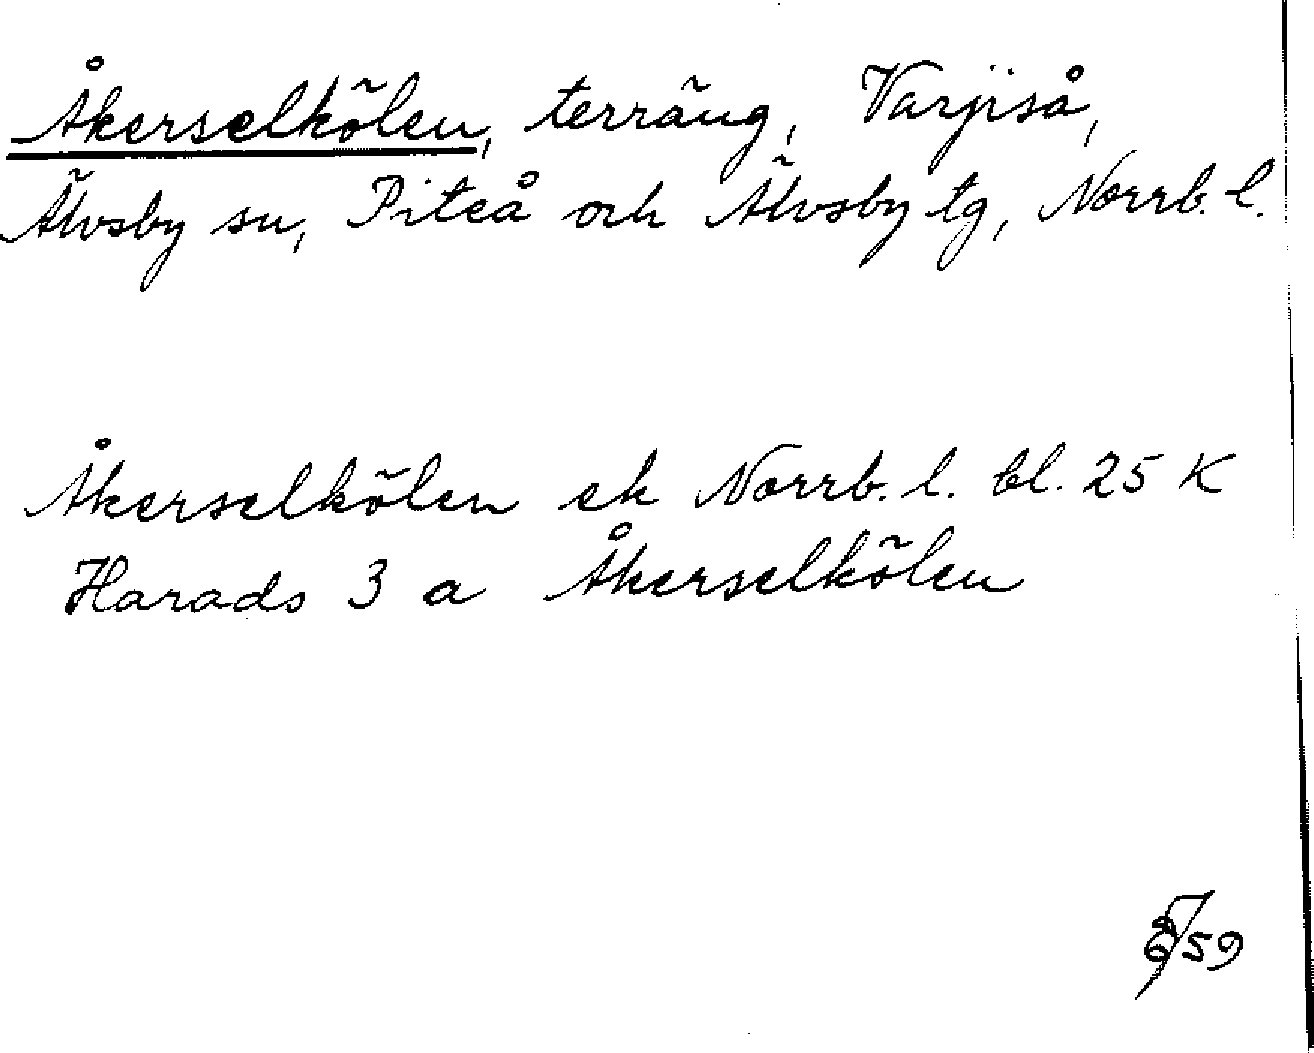 Åkerselkölen, terräng, Varjiså,
Älvsby sn, Piteå och Älvsby tg, Norrb. l.
Åkerselkölen ek Norrb. l. bl. 25 K
Harads 3 a Åkerselkölen
59